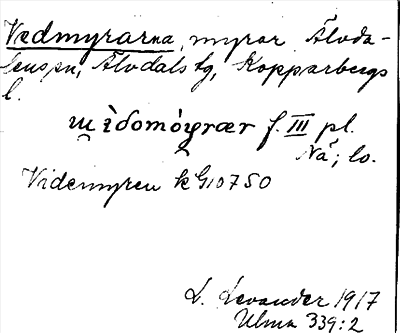 Vedmyrarna, myrar Älvda-
lens sn, Älvdals tg, Kopparbergs
l.
f. III pl.
Nä; lo.
Videmyren k G10750
L. Levander 1917
Ulma 339:2